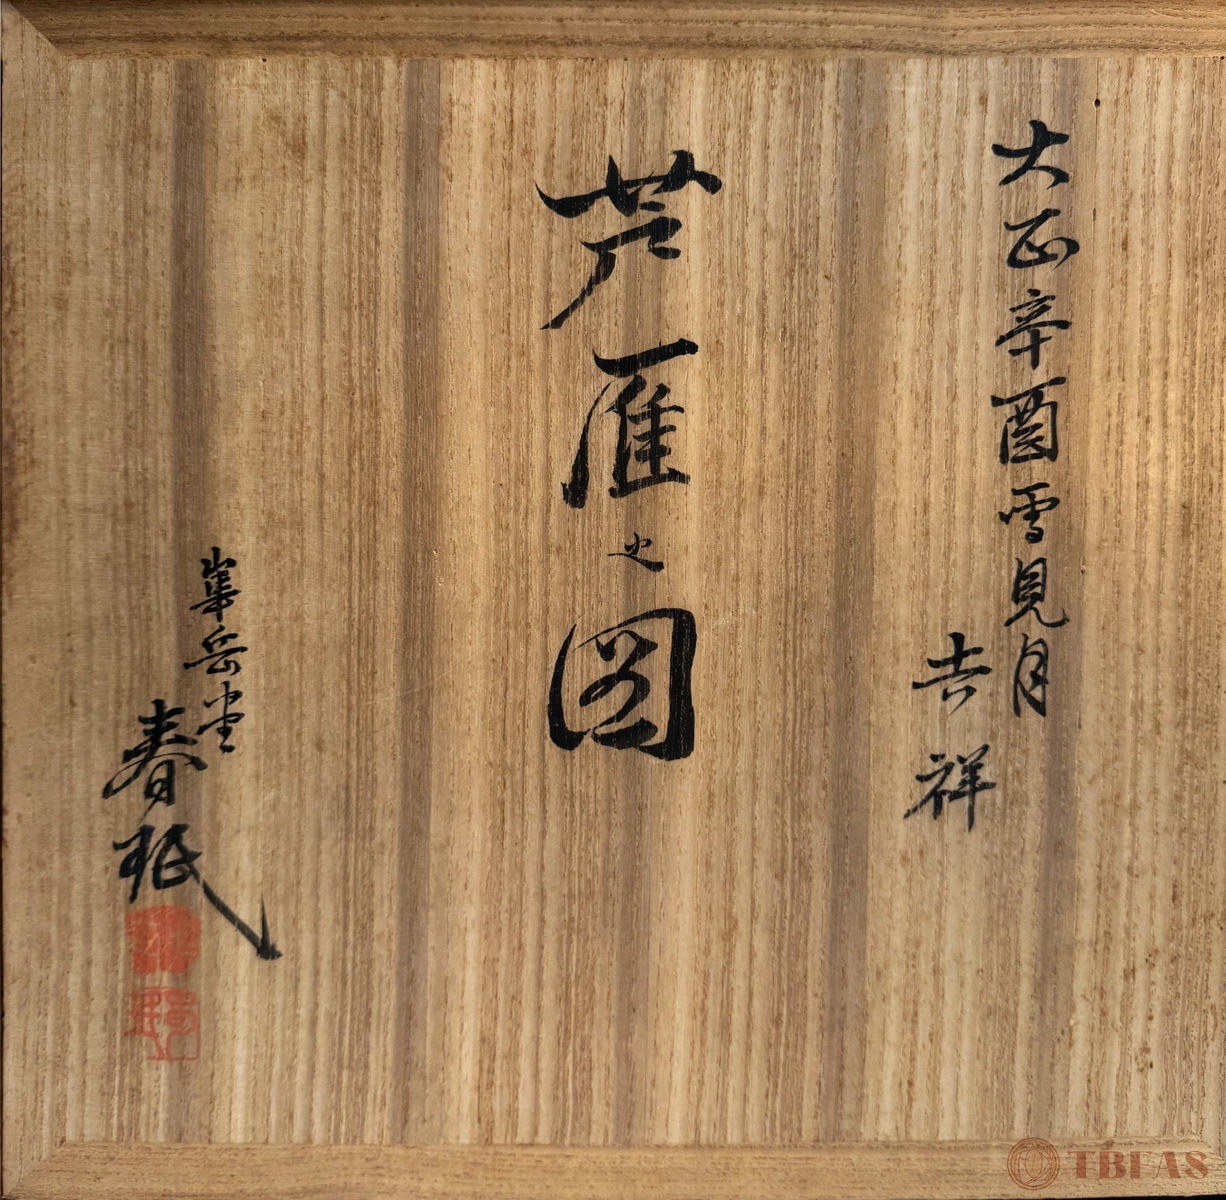 大正辛酉雪見月
吉祥
芦雁之図
崋岳堂
春珉
TBFAS